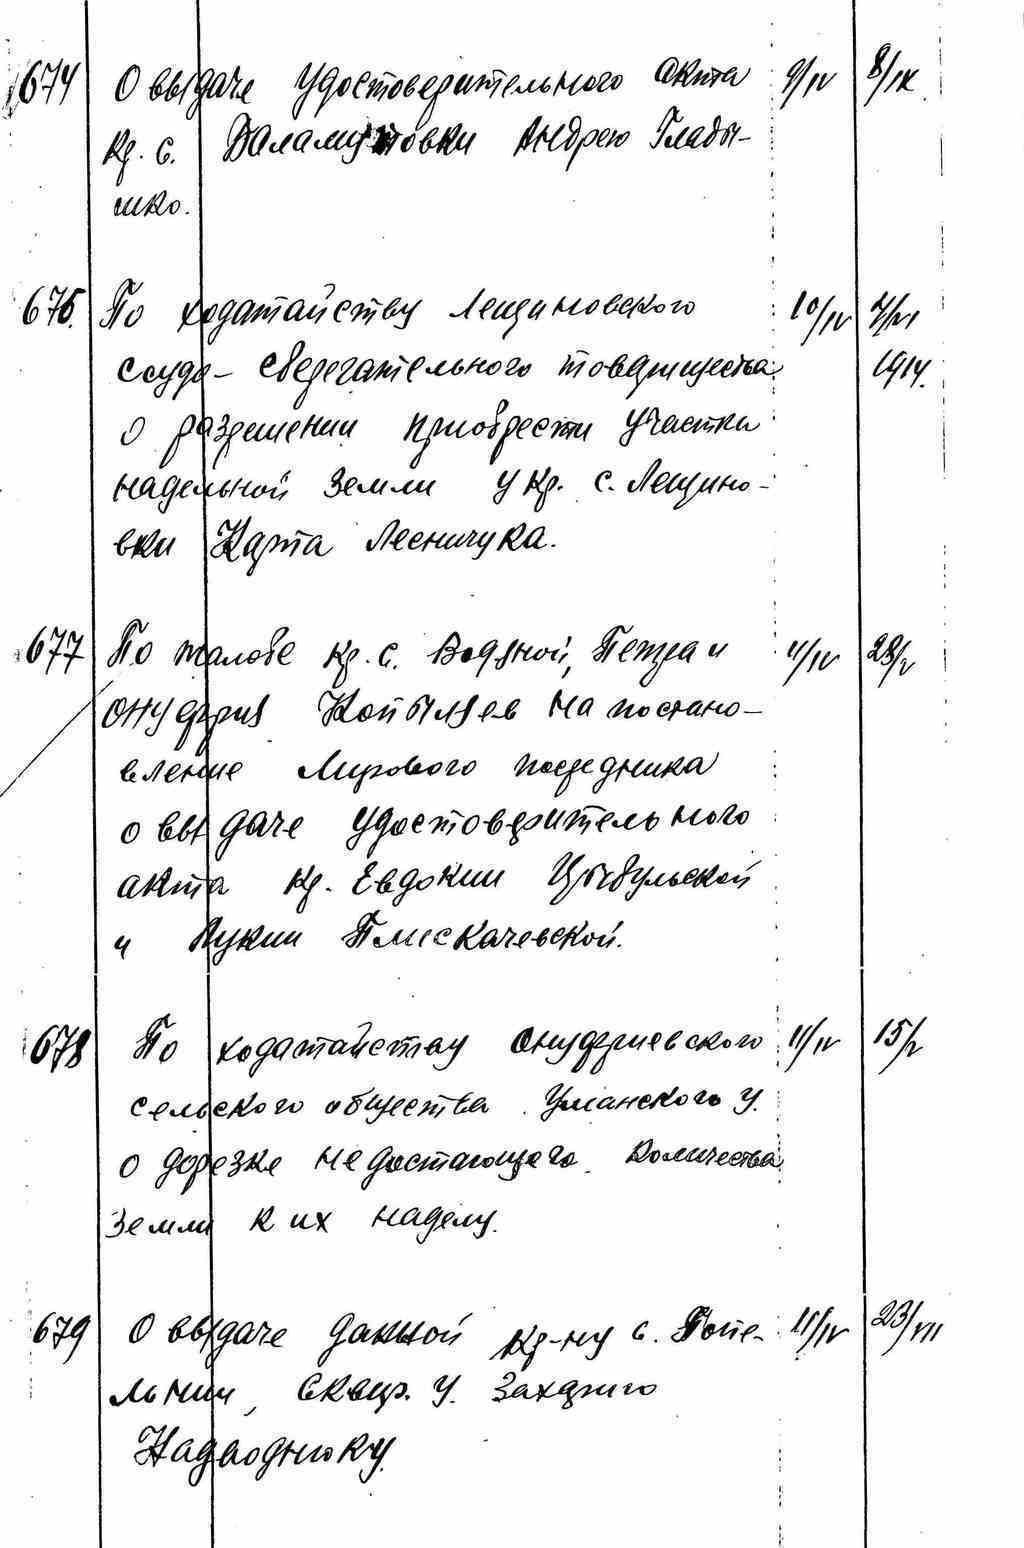 674 О выдаче удостоверительного акта 9/IV 8/IX
кр. с. Баламутовки Андрею Глады-
шко.
675. По ходатайству Лещиновского 10/IV 7/VI
ссудо-сберегательного товарищества 1914.
о разрешении приобрести участки
надельной земли у кр. с. Лещино-
вки Карпа Лесничука.
677 По жалобе кр. с. Водяной, Петра и 4/IV 28/V
Онуфрия Копыляев на постано-
вление Мирового посредника
о выдаче удостоверительного
акта кр. Евдокии Цыбульской
и Лукии Плискачевской.
678 По ходатайству Онуфриевского 11/IV 15/V
сельского общества Уманского у.
о дорезке недостающего количества
земли к их наделу.
679 О выдаче данной кр-ну с. Попе- 11/IV 23/VII
льни, Сквир. у. Захарию
Надводнюку.